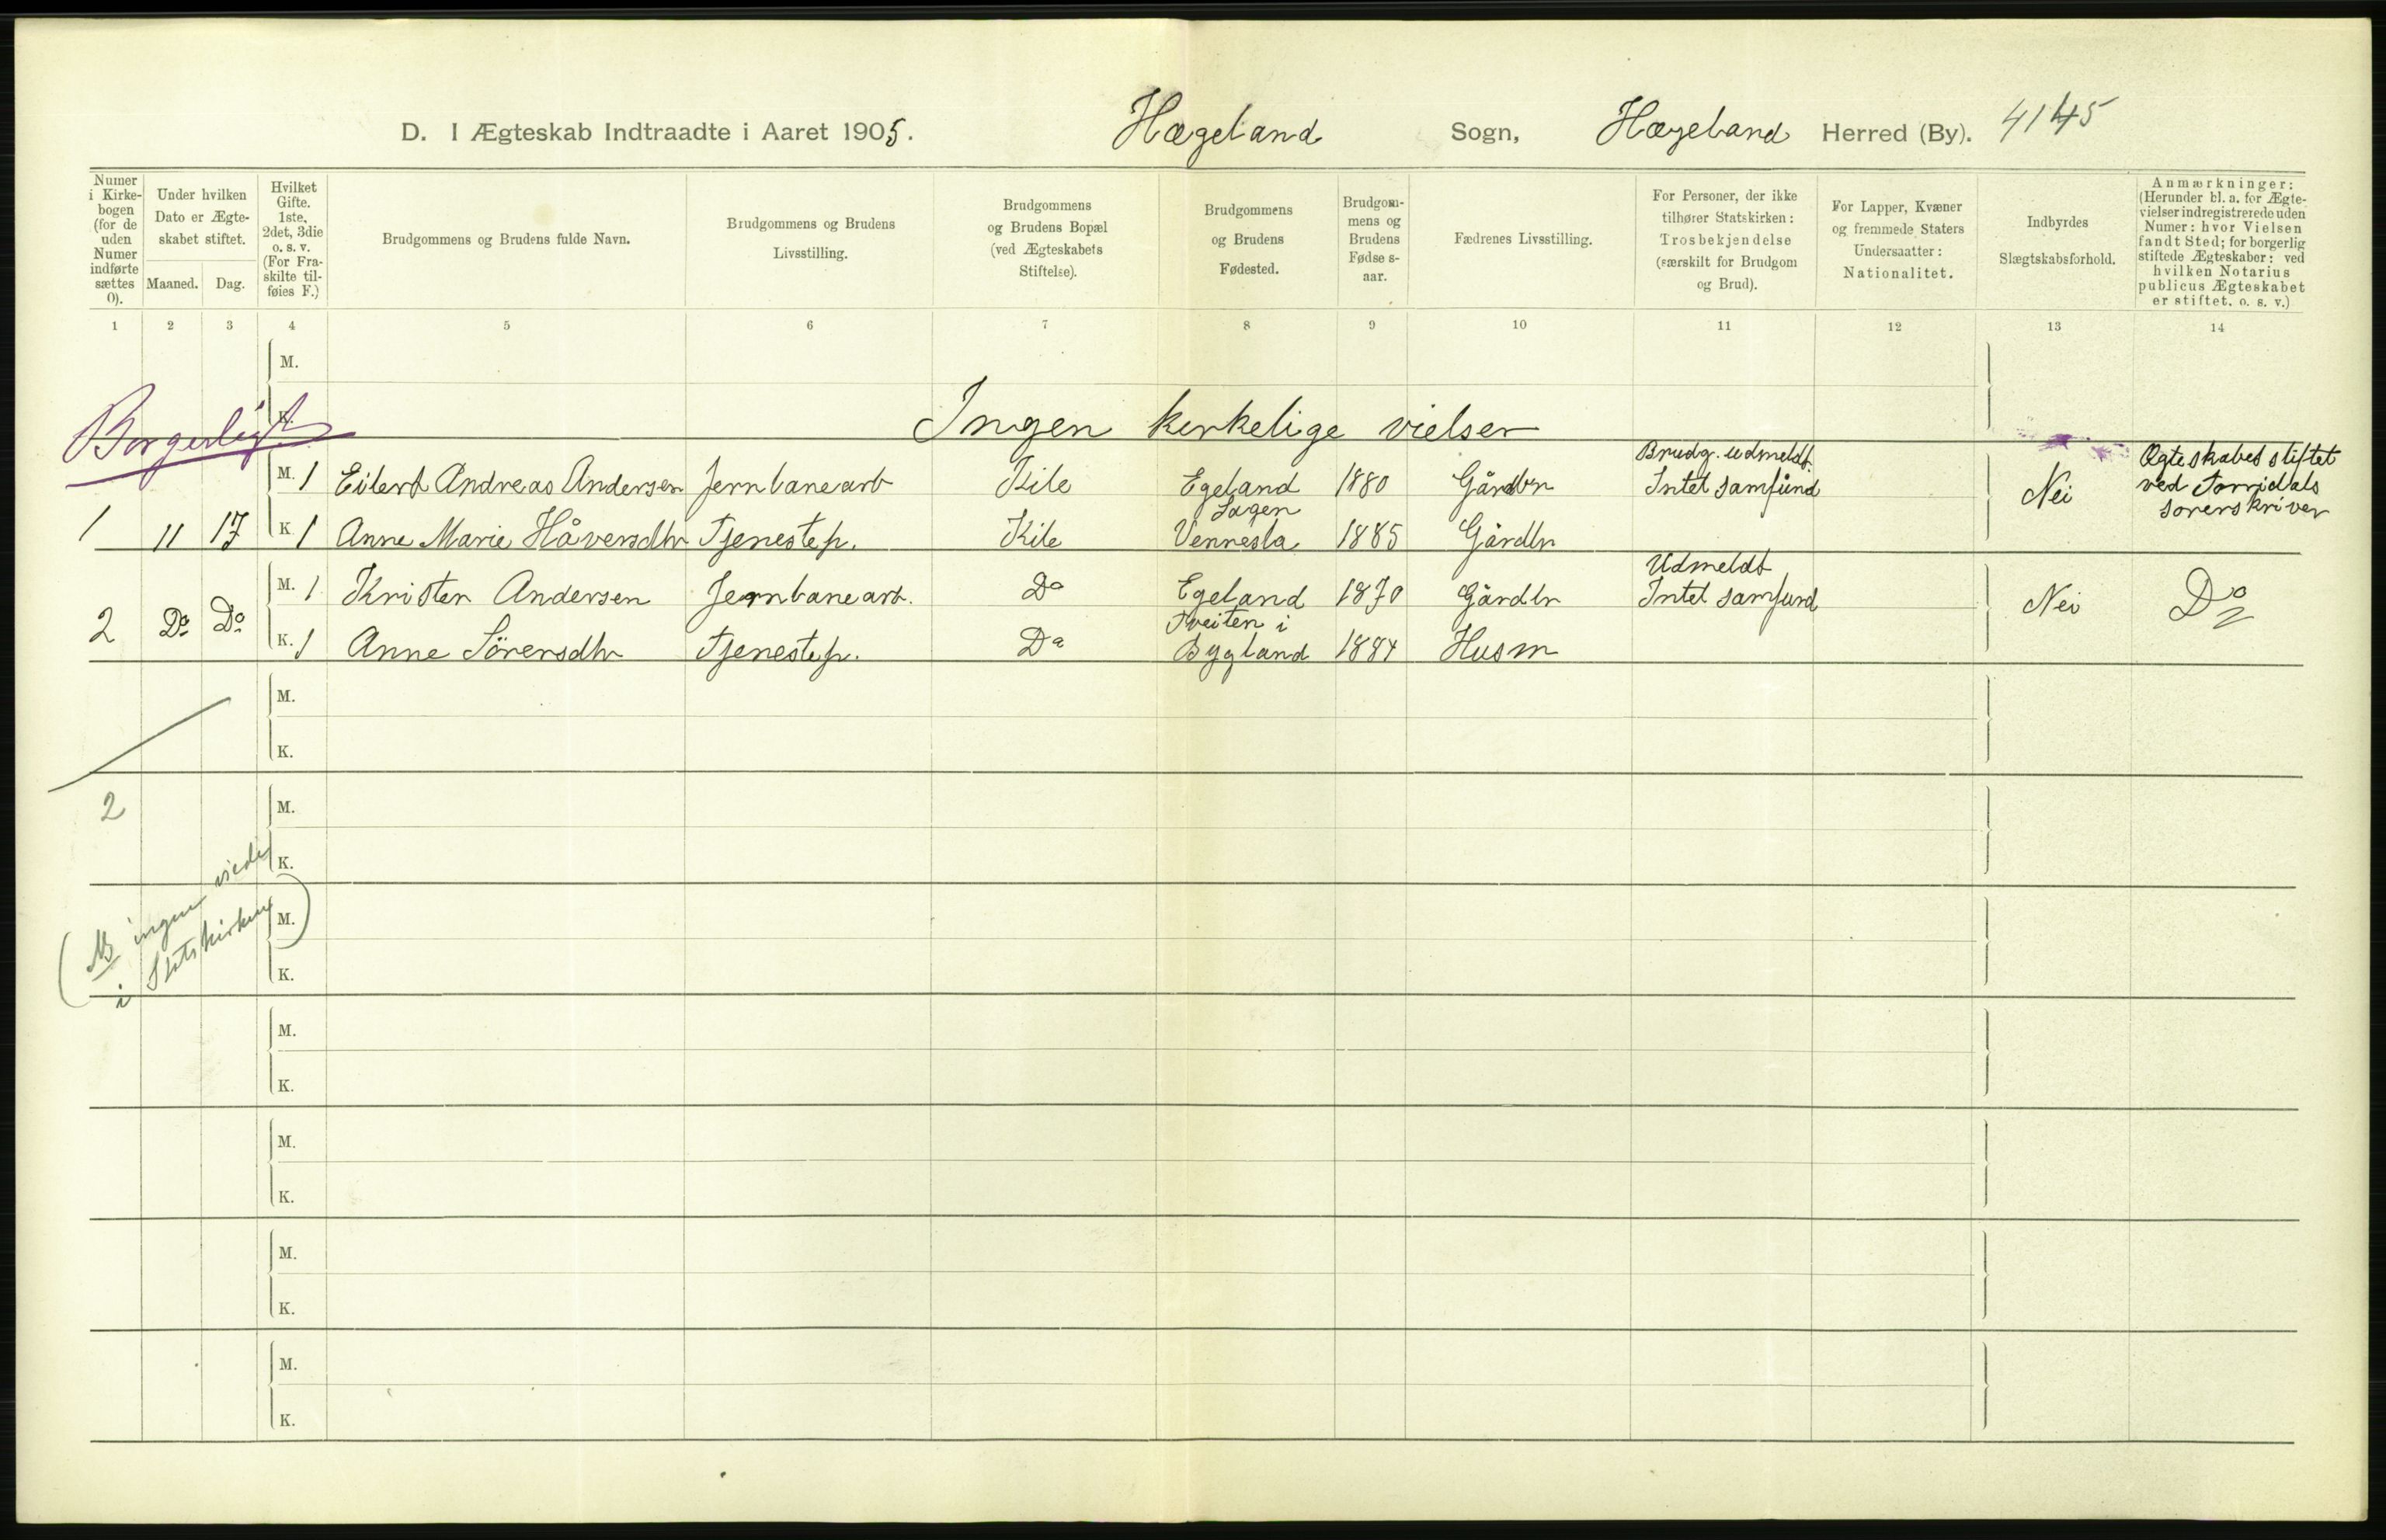 D. I Ægteskab Indtraadte i Aaret 1905. Hægeland Sogn, Hægeland Herred (By). 4145
Numer i Kirke-bogen (for de uden Numer indførte sættes 0).
Under hvilken Dato er Ægte-skabet stiftet.
Maaned. Dag.
Hvilket Gifte. 1ste, 2det, 3die o. s. v. (For Fra-skilte til-føies F.)
Brudgommens og Brudens fulde Navn.
Brudgommens og Brudens Livsstilling.
Brudgommens og Brudens Bopæl (ved Ægteskabets Stiftelse).
Brudgommens og Brudens Fødested.
Brudgom-mens og Brudens Fødse s-aar.
Fædrenes Livsstilling.
For Personer, der ikke tilhører Statskirken: Trosbekjendelse (særskilt for Brudgom og Brud).
For Lapper, Kvæner og fremmede Staters Undersaatter: Nationalitet.
Indbyrdes Slægtskabsforhold.
Anmærkninger: (Herunder bl. a. for Ægte-vielser indregistrerede uden Numer: hvor Vielsen fandt Sted; for borgerlig stiftede Ægteskaber: ved hvilken Notarius publicus Ægteskabet er stiftet. o. s. v.)
1 2 3 4 5 6 7 8 9 10 11 12 13 14
M.
K.
Borgerligt
Ingen kirkelige vielser
M. 1 Eilert Andreas Andersen Jernbanearb Kile Egeland 1880 Gårdbr Brudg. udmeldt. Intet samfund Nei Ægteskabet stiftet ved Torridals sorenskriver
1 11 17 K. 1 Anne Marie Håversdtr Tjenestep. Kile Vennesla 1885 Gårdbr
M. 1 Kristen Andersen Jernbanearb. Do Egeland 1870 Gårdbr Udmeldt Intet samfund Nei Do
2 Do Do K. 1 Anne Sörensdtr Tjenestep. Do Tveiten i Bygland 1884 Husm
M.
K.
2
M.
K.
(NB ingen viede
i Statskirken)
M.
K.
M.
K.
M.
K.
M.
K.
M.
K.